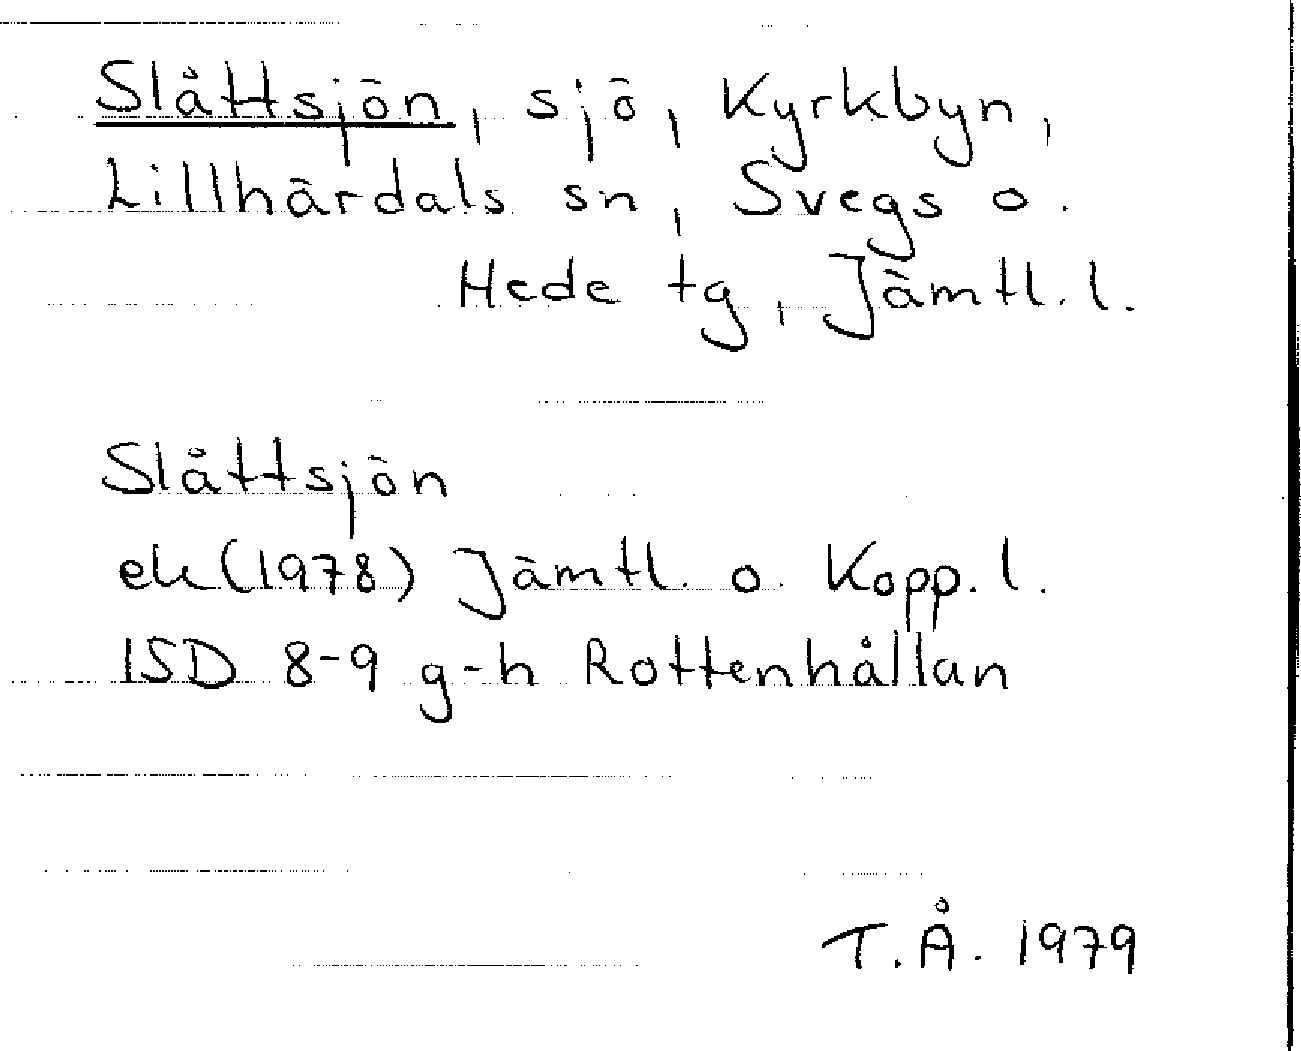 Slåttsjön, sjö, Kyrkbyn,
Lillhärdals sn, Svegs o.
Hede tg, Jämtl. l.
Slåttsjön
ek (1978) Jämtl. o. Kopp. l.
15D 8-9 g-h Rottenhållan
T.Å. 1979